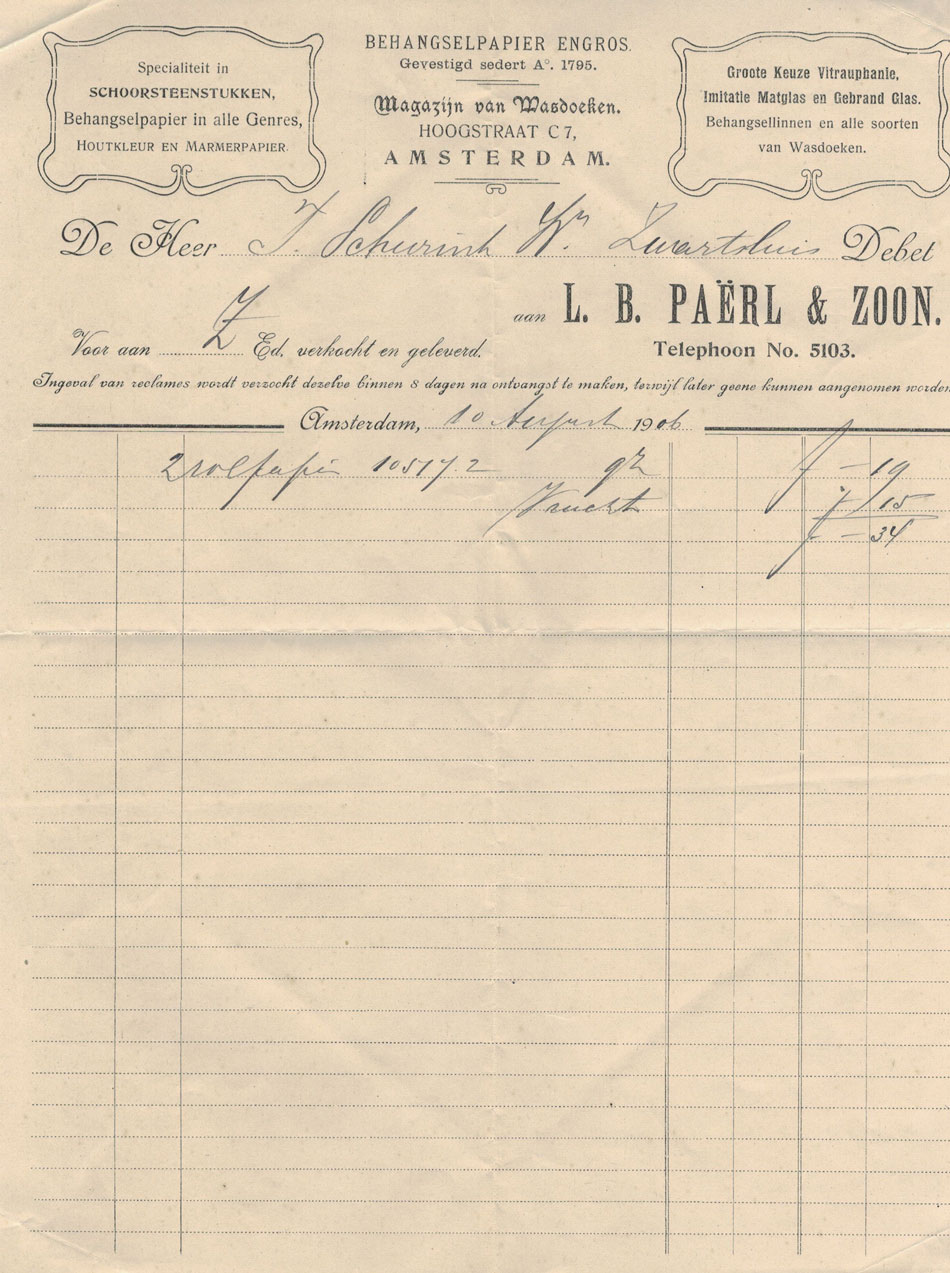 Specialiteit in
SCHOORSTEENSTUKKEN,
Behangselpapier in alle Genres,
HOUTKLEUR EN MARMERPAPIER.
BEHANGSELPAPIER ENGROS.
Gevestigd sedert A°. 1795.
Magazijn van Wasdoeken.
HOOGSTRAAT C 7,
AMSTERDAM.
Groote Keuze Vitrauphanie,
Imitatie Matglas en Gebrand Glas.
Behangsellinnen en alle soorten
van Wasdoeken.
De Heer J. Scheurink Wr. Zwartsluis Debet
aan L. B. PAËRL & ZOON.
Voor aan Z Ed. verkocht en geleverd.
Telephoon No. 5103.
Ingeval van reclames wordt verzocht dezelve binnen 8 dagen na ontvangst te maken, terwijl later geene kunnen aangenomen worden
Amsterdam, 10 August 1906
2 rol papier 10517.2 9½ f - 19
Vracht f / 15
f - 34